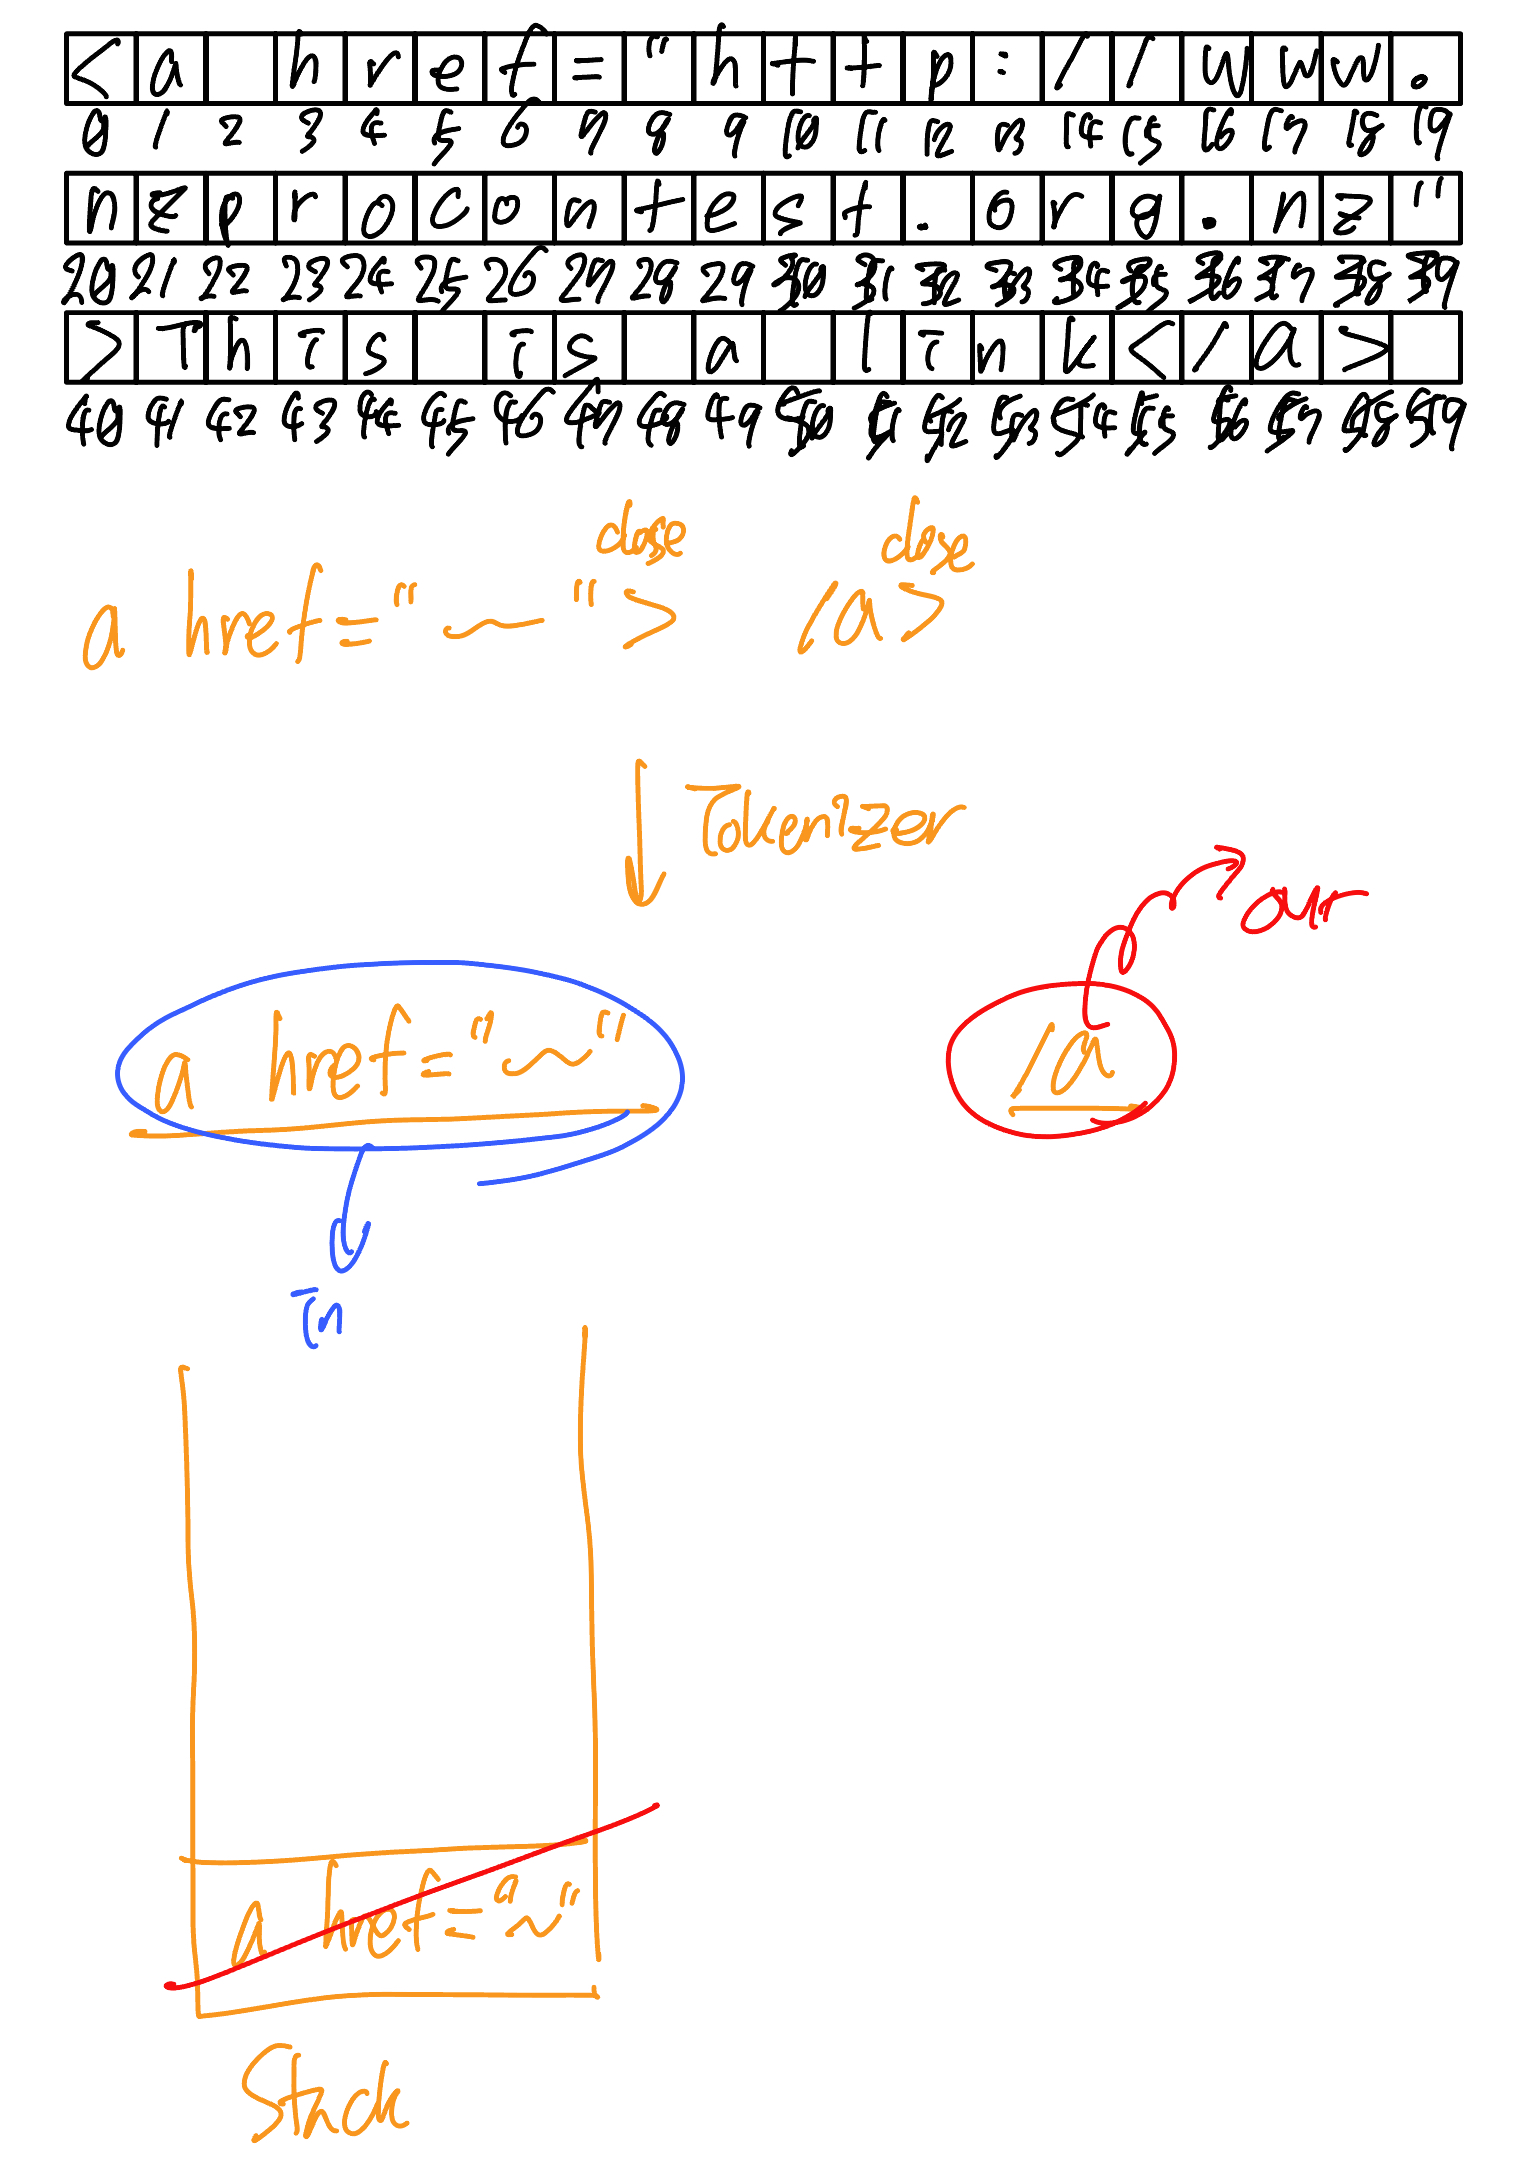 <a href="http://www.
0 1 2 3 4 5 6 7 8 9 10 11 12 13 14 15 16 17 18 19
nzprocontest.org.nz"
20 21 22 23 24 25 26 27 28 29 30 31 32 33 34 35 36 37 38 39
>This is a link</a>
40 41 42 43 44 45 46 47 48 49 50 51 52 53 54 55 56 57 58 59
close close
a href="~"> /a>
Tokenizer
out
a href="~" /a
in
a href="~"
Stack